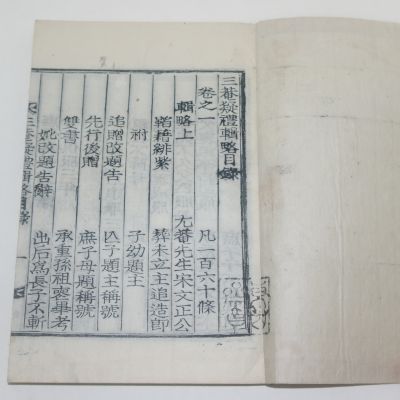 三菴疑禮輯略目錄
卷之一 凡一百六十條
輯略上 尤菴先生宋文正公
鞱藉緋紫 葬未立主追造師
祔 子幼題主
追贈改題告 亡子題主稱號
先行後贈 庶子母題稱號
雙書 承重孫祖喪畢考
妣改題告辭 出后爲長子不斬
三菴疑禮輯略目錄 一